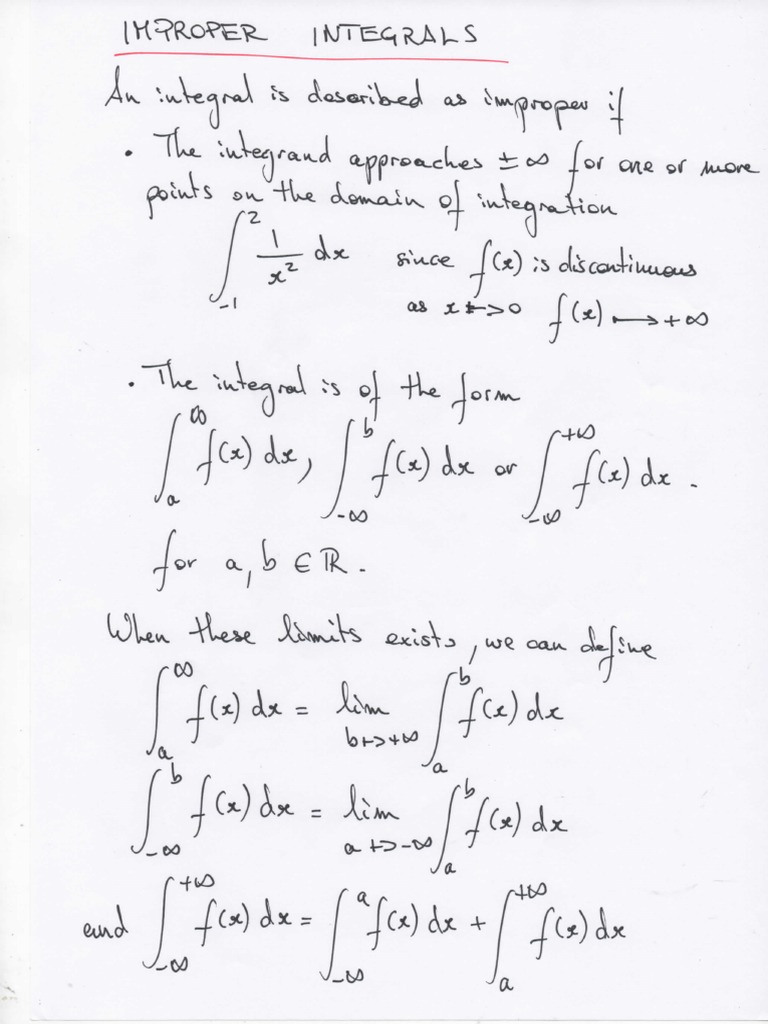 IMPROPER INTEGRALS
An integral is described as improper if
• The integrand approaches ±∞ for one or more
points on the domain of integration
∫_{-1}^{2} 1/x² dx since f(x) is discontinuous
as x ↦ 0 f(x) ⟼ +∞
• The integral is of the form
∫_a^∞ f(x) dx, ∫_{-∞}^b f(x) dx or ∫_{-∞}^{+∞} f(x) dx.
for a, b ∈ ℝ.
When these limits exists, we can define
∫_a^∞ f(x) dx = lim_{b↦+∞} ∫_a^b f(x) dx
∫_{-∞}^b f(x) dx = lim_{a↦-∞} ∫_a^b f(x) dx
and ∫_{-∞}^{+∞} f(x) dx = ∫_{-∞}^a f(x) dx + ∫_a^{+∞} f(x) dx